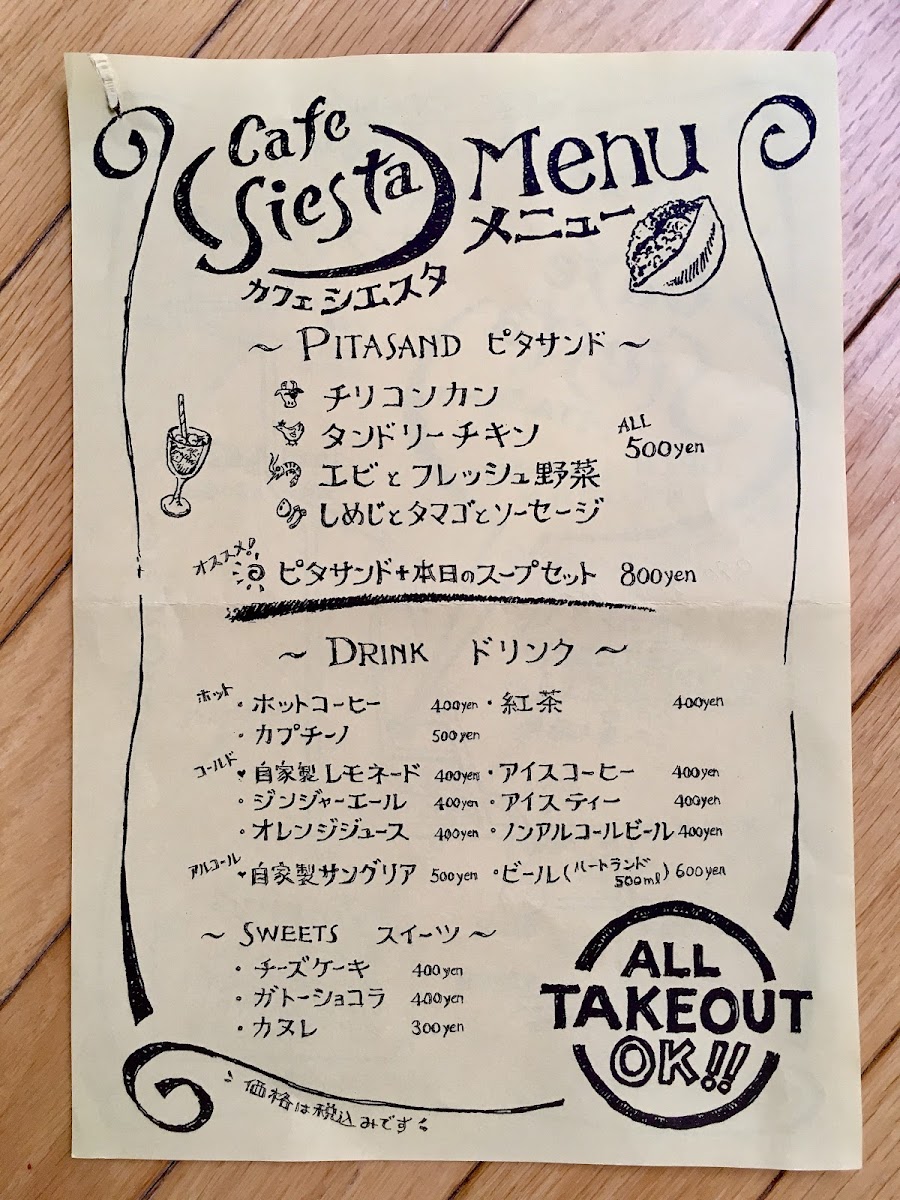 Cafe Siesta Menu
カフェ シエスタ メニュー
~ PITASAND ピタサンド ~
チリコンカン
タンドリーチキン
エビとフレッシュ野菜
しめじとタマゴとソーセージ
ALL 500yen
オススメ!
ピタサンド+本日のスープセット 800yen
~ DRINK ドリンク ~
ホット ・ホットコーヒー 400yen ・紅茶 400yen
・カプチーノ 500yen
コールド ♥自家製レモネード 400yen ・アイスコーヒー 400yen
・ジンジャーエール 400yen ・アイスティー 400yen
・オレンジジュース 400yen ・ノンアルコールビール 400yen
アルコール ♥自家製サングリア 500yen ・ビール(ハートランド 500ml) 600yen
~ SWEETS スイーツ ~
・チーズケーキ 400yen
・ガトーショコラ 400yen
・カヌレ 300yen
ALL
TAKEOUT
OK!!
価格は税込みです